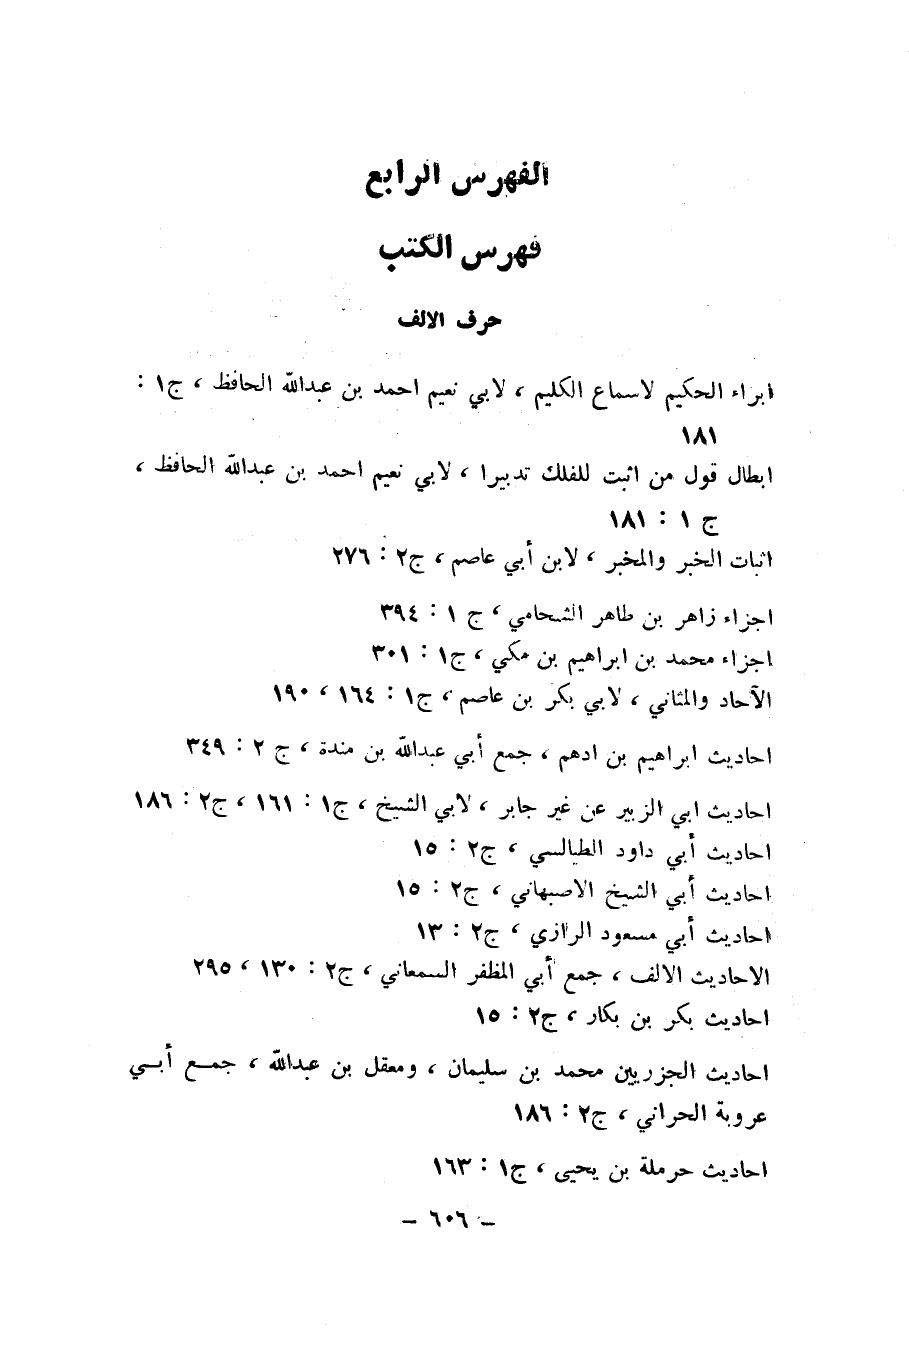 الفهرس الرابع
فهرس الكتب
حرف الالف
ابراء الحكيم لاسماع الكليم ، لابي نعيم احمد بن عبدالله الحافظ ، ج١ :
١٨١
ابطال قول من اثبت للفلك تدبيرا ، لابي نعيم احمد بن عبدالله الحافظ ،
ج ١ : ١٨١
اثبات الخبر والمخبر ، لابن أبي عاصم ، ج٢ : ٢٧٦
اجزاء زاهر بن طاهر الشحامي ، ج ١ : ٣٩٤
اجزاء محمد بن ابراهيم بن مكي ، ج١ : ٣٠١
الآحاد والمثاني ، لابي بكر بن عاصم ، ج١ : ١٦٤ ، ١٩٠
احاديث ابراهيم بن ادهم ، جمع أبي عبدالله بن مندة ، ج ٢ : ٣٤٩
احاديث ابي الزبير عن غير جابر ، لابي الشيخ ، ج١ : ١٦١ ، ج٢ : ١٨٦
احاديث أبي داود الطيالسي ، ج٢ : ١٥
احاديث أبي الشيخ الاصبهاني ، ج٢ : ١٥
احاديث أبي مسعود الرازي ، ج٢ : ١٣
الاحاديث الالف ، جمع أبي المظفر السمعاني ، ج٢ : ١٣٠ ، ٢٩٥
احاديث بكر بن بكار ، ج٢ : ١٥
احاديث الجزريين محمد بن سليمان ، ومعقل بن عبدالله ، جمـع أبـي
عروبة الحراني ، ج٢ : ١٨٦
احاديث حرملة بن يحيى ، ج١ : ١٦٣
– ٦٠٦ –